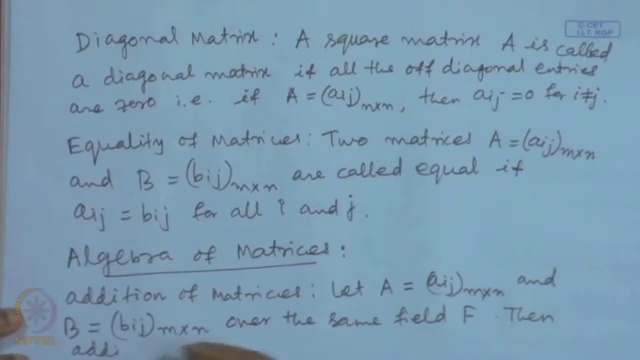 © CET
I.I.T. KGP
Diagonal Matrix : A square matrix A is called
a diagonal matrix if all the off diagonal entries
are zero i.e. if A = (aij)m×n, then aij = 0 for i≠j.
Equality of Matrices : Two matrices A = (aij)m×n
and B = (bij)m×n are called equal if
aij = bij for all i and j.
Algebra of Matrices :
addition of Matrices : Let A = (aij)m×n and
B = (bij)m×n over the same field F. Then
addi
NPTEL